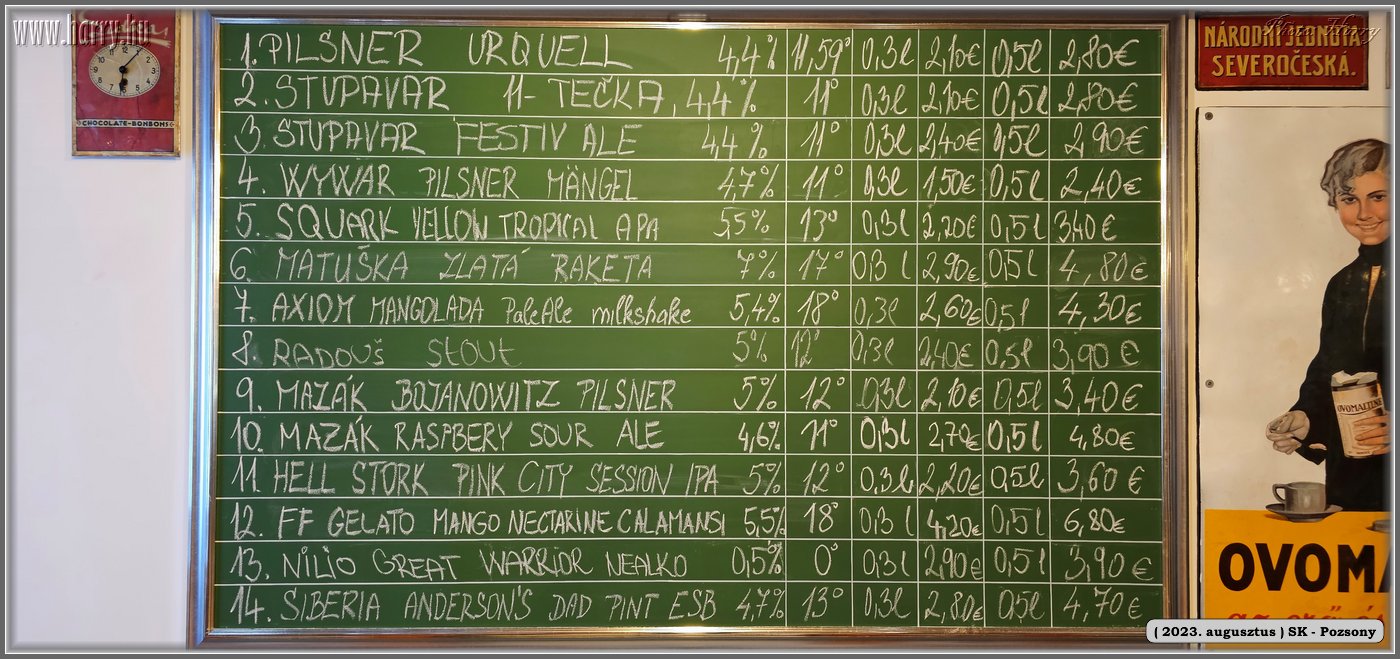 www.harry.hu
Photo: Harry
CHOCOLATE-BONBONS
1. PILSNER URQUELL 4,4% 11,59° 0,3l 2,10€ 0,5l 2,80€
2. STUPAVAR 11- TEČKA, 4,4% 11° 0,3l 2,10€ 0,5l 2,80€
3. STUPAVAR FESTIV ALE 4,4% 11° 0,3l 2,40€ 0,5l 2,90€
4. WYWAR PILSNER MÄNGEL 4,7% 11° 0,3l 1,50€ 0,5l 2,40€
5. SQUARK YELLOW TROPICAL APA 5,5% 13° 0,3l 2,20€ 0,5l 3,40€
6. MATUŠKA ZLATÁ RAKETA 7% 17° 0,3l 2,90€ 0,5l 4,80€
7. AXIOM MANGOLADA PaleAle milkshake 5,4% 18° 0,3l 2,60€ 0,5l 4,30€
8. RADOUš Stout 5% 12° 0,3l 2,40€ 0,5l 3,90€
9. MAZÁK BOJANOWITZ PILSNER 5% 12° 0,3l 2,10€ 0,5l 3,40€
10. MAZÁK RASPBERY SOUR ALE 4,6% 11° 0,3l 2,70€ 0,5l 4,80€
11. HELL STORK PINK CITY SESSION IPA 5% 12° 0,3l 2,20€ 0,5l 3,60€
12. FF GELATO MANGO NECTARINE CALAMANSI 5,5% 18° 0,3l 4,20€ 0,5l 6,80€
13. NILIO GREAT WARRIOR NEALKO 0,5% 0° 0,3l 2,90€ 0,5l 3,90€
14. SIBERIA ANDERSON'S DAD PINT ESB 4,7% 13° 0,3l 2,80€ 0,5l 4,70€
NÁRODNÍ JEDNOTA
SEVEROČESKÁ.
OVOMALTINE
OVOMA
( 2023. augusztus ) SK - Pozsony